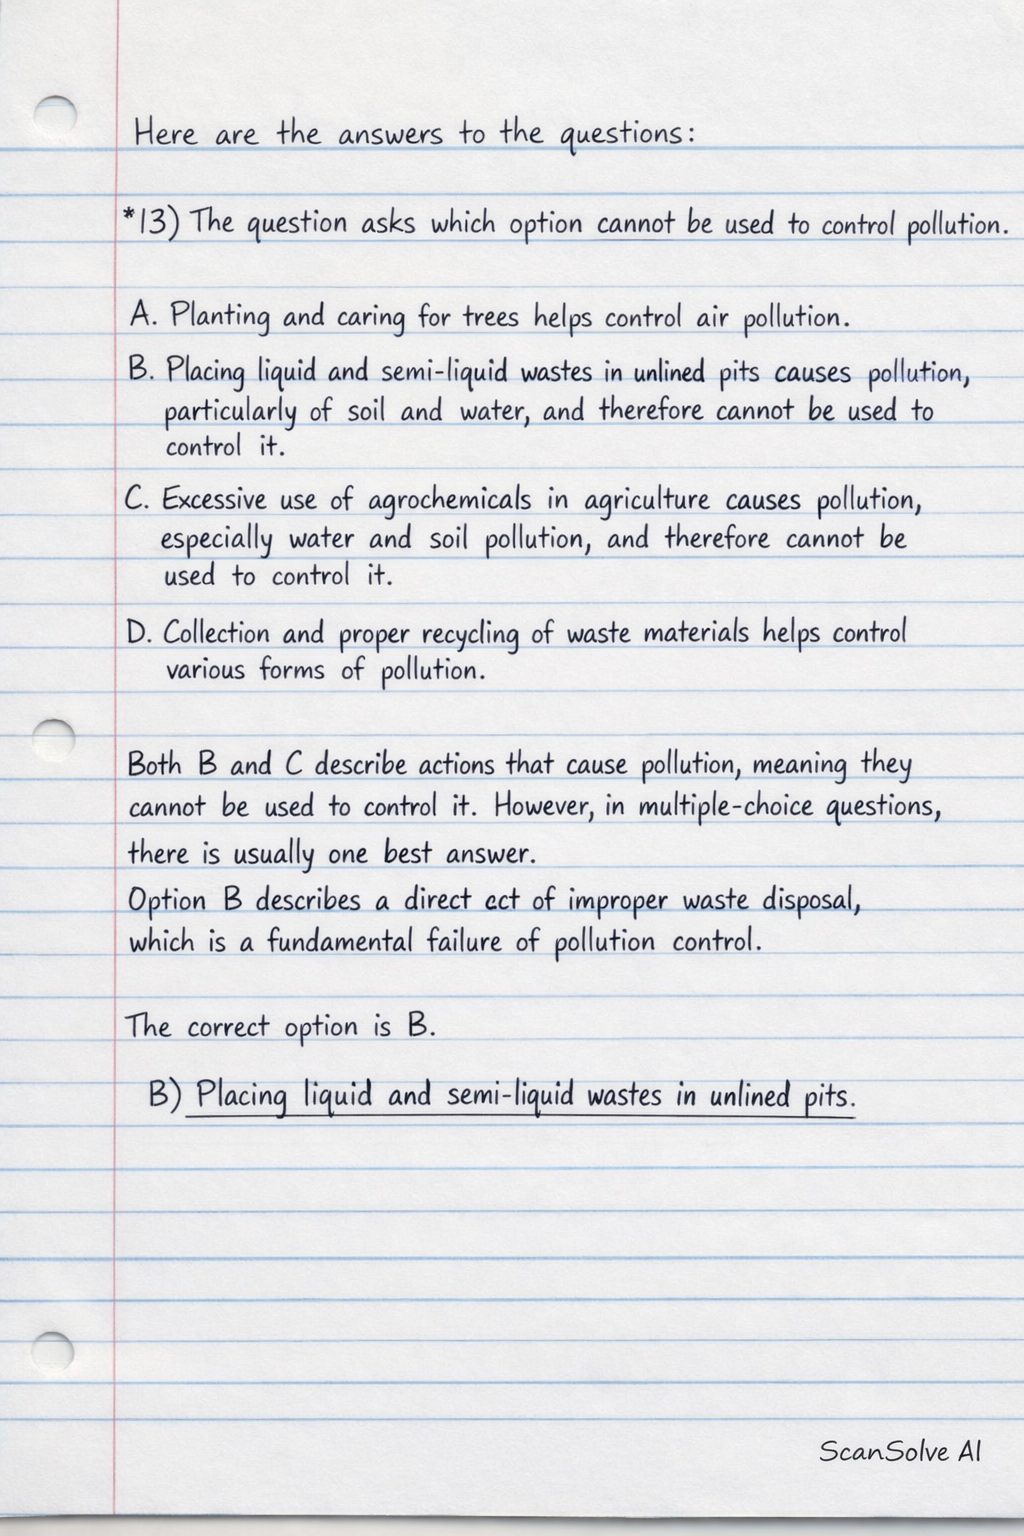 Here are the answers to the questions:
*13) The question asks which option cannot be used to control pollution.
A. Planting and caring for trees helps control air pollution.
B. Placing liquid and semi-liquid wastes in unlined pits causes pollution,
particularly of soil and water, and therefore cannot be used to
control it.
C. Excessive use of agrochemicals in agriculture causes pollution,
especially water and soil pollution, and therefore cannot be
used to control it.
D. Collection and proper recycling of waste materials helps control
various forms of pollution.
Both B and C describe actions that cause pollution, meaning they
cannot be used to control it. However, in multiple-choice questions,
there is usually one best answer.
Option B describes a direct act of improper waste disposal,
which is a fundamental failure of pollution control.
The correct option is B.
B) Placing liquid and semi-liquid wastes in unlined pits.
ScanSolve AI